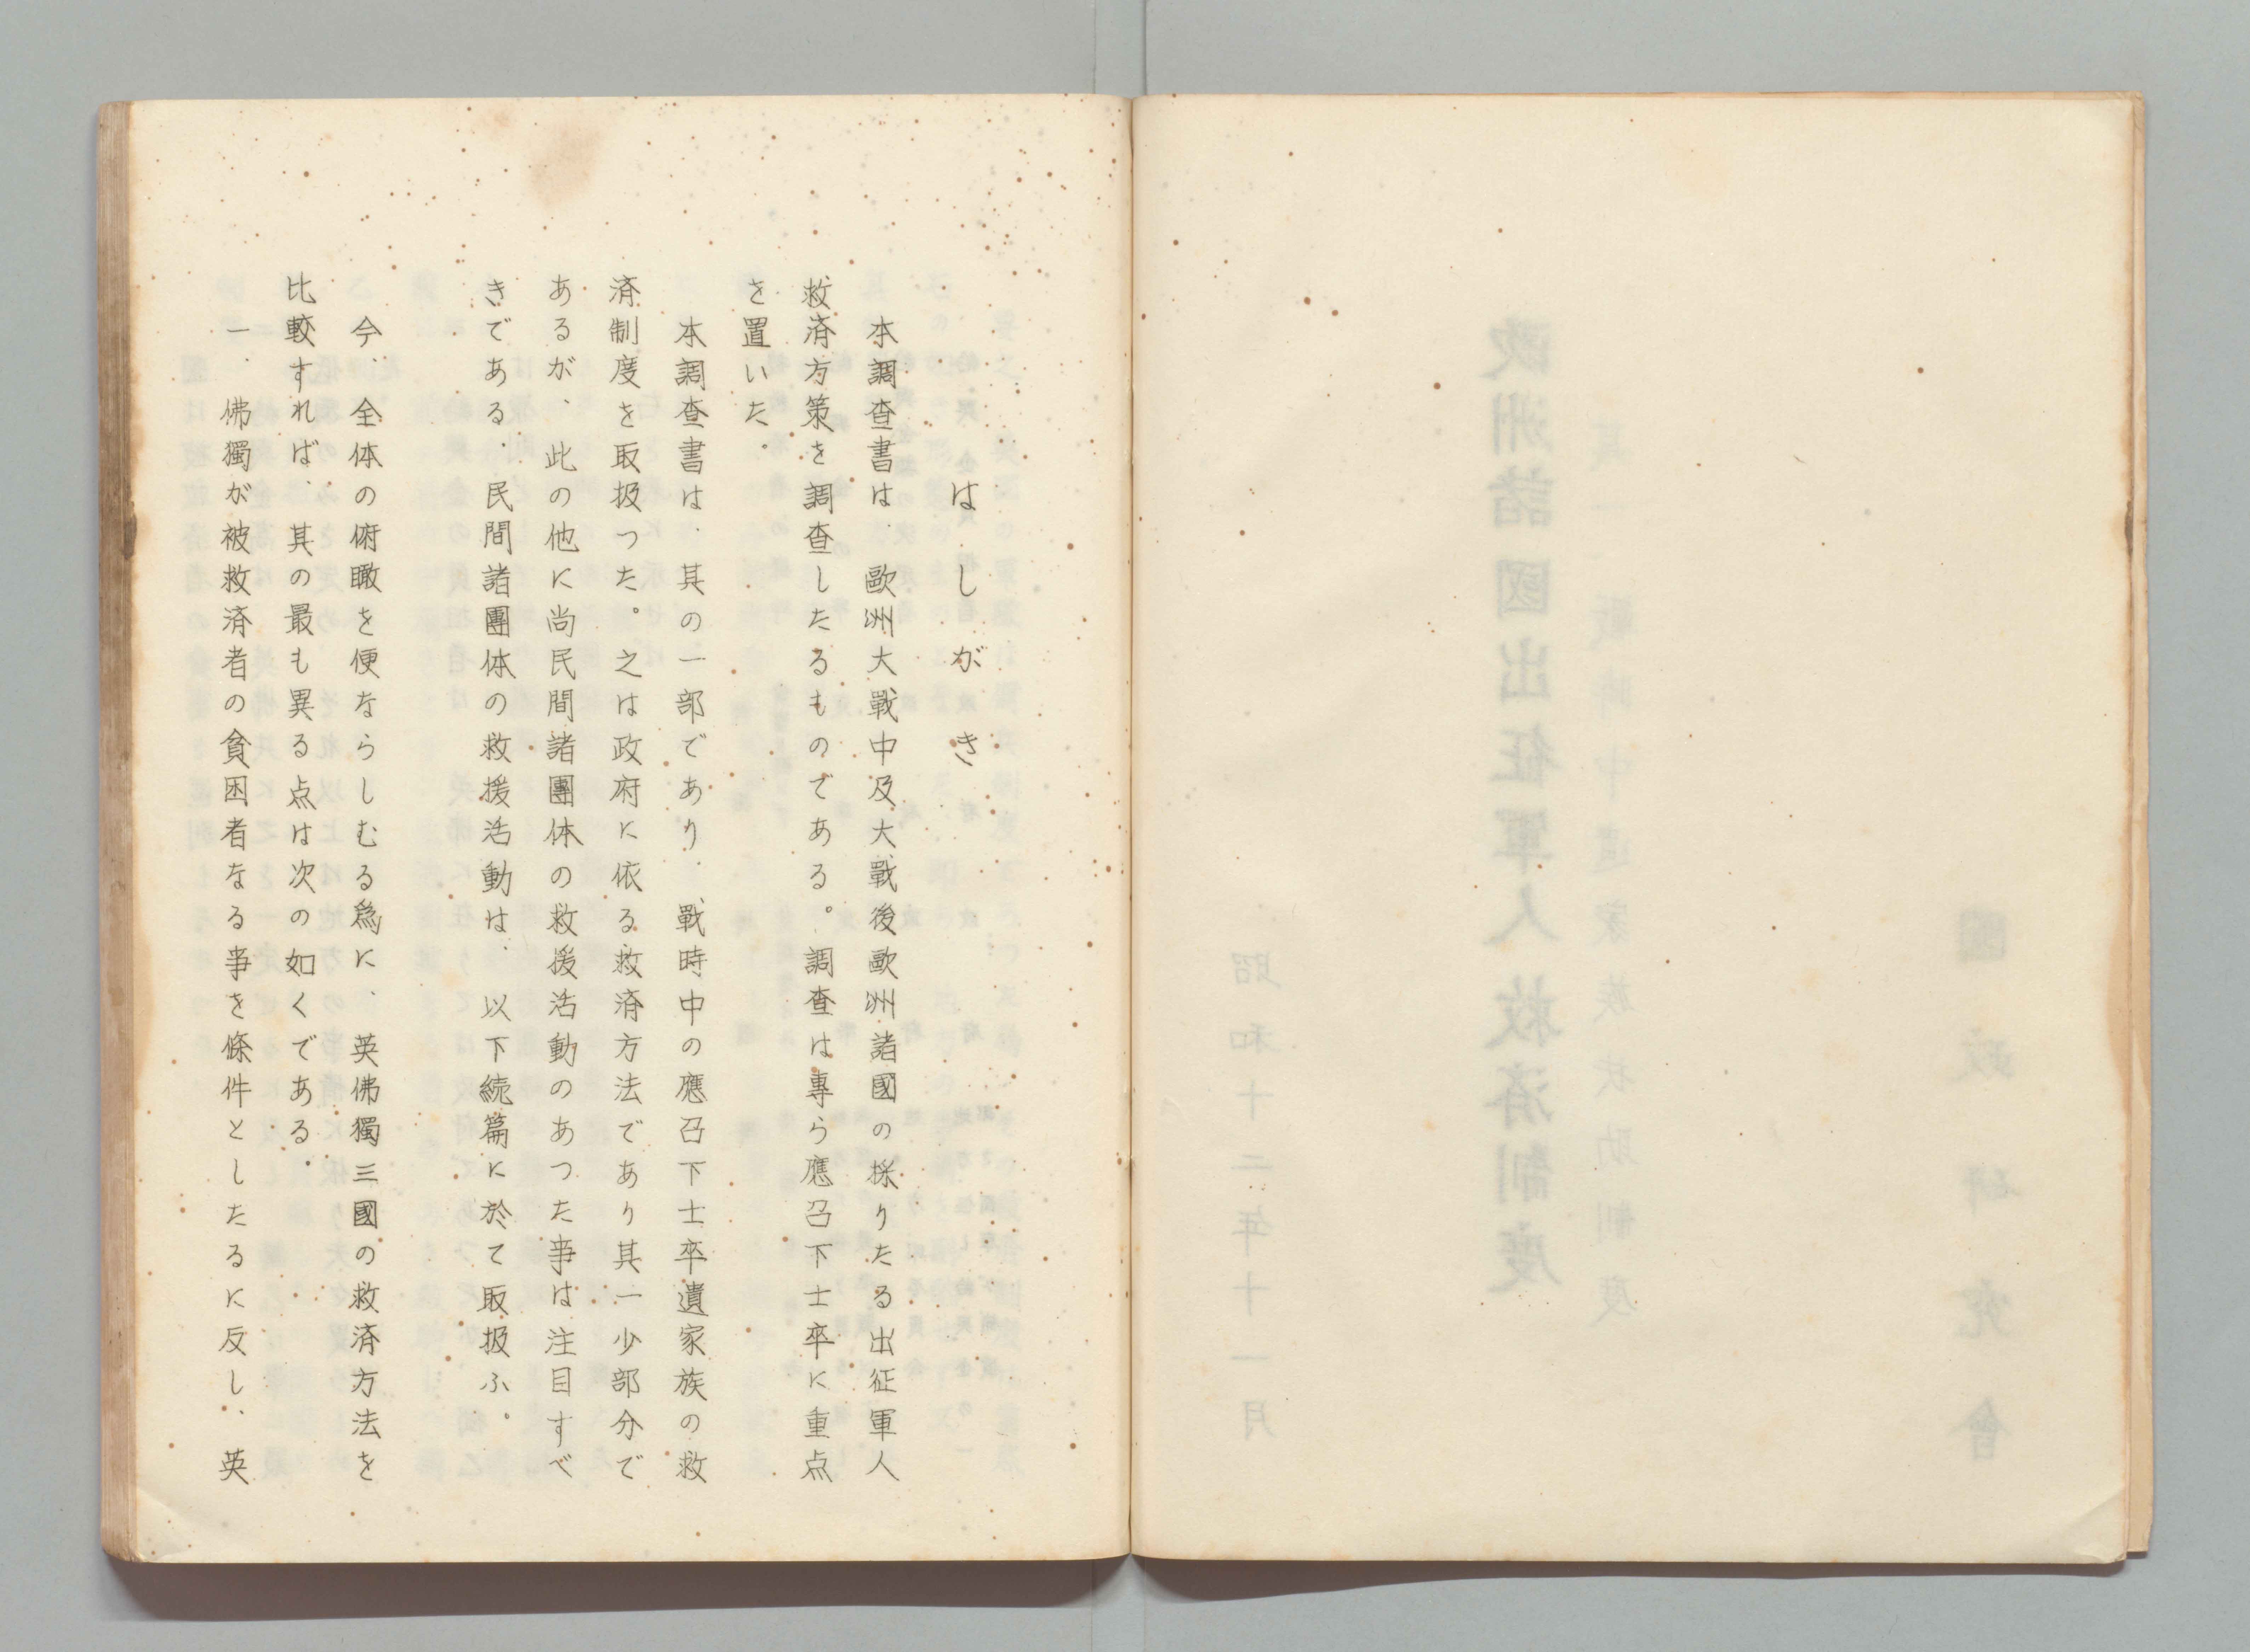 はしがき
本調査書は、歐洲大戰中及大戰後歐洲諸國の採りたる出征軍人
救済方策を調査したるものである。調査は專ら應召下士卒に重点
を置いた。
本調査書は、其の一部であり、戰時中の應召下士卒遺家族の救
済制度を取扱つた。之は政府に依る救済方法であり其一少部分で
あるが、此の他に尚民間諸團体の救援活動のあつた事は注目すべ
きである、民間諸團体の救援活動は、以下続篇に於て取扱ふ。
今、全体の俯瞰を便ならしむる爲に、英佛獨三國の救済方法を
比較すれば、其の最も異る点は次の如くである。
一、佛獨が被救済者の貧困者なる事を條件としたるに反し、英
歐洲諸國出征軍人救済制度
其一 戰時中遺家族扶助制度
國政研究會
昭和十二年十一月